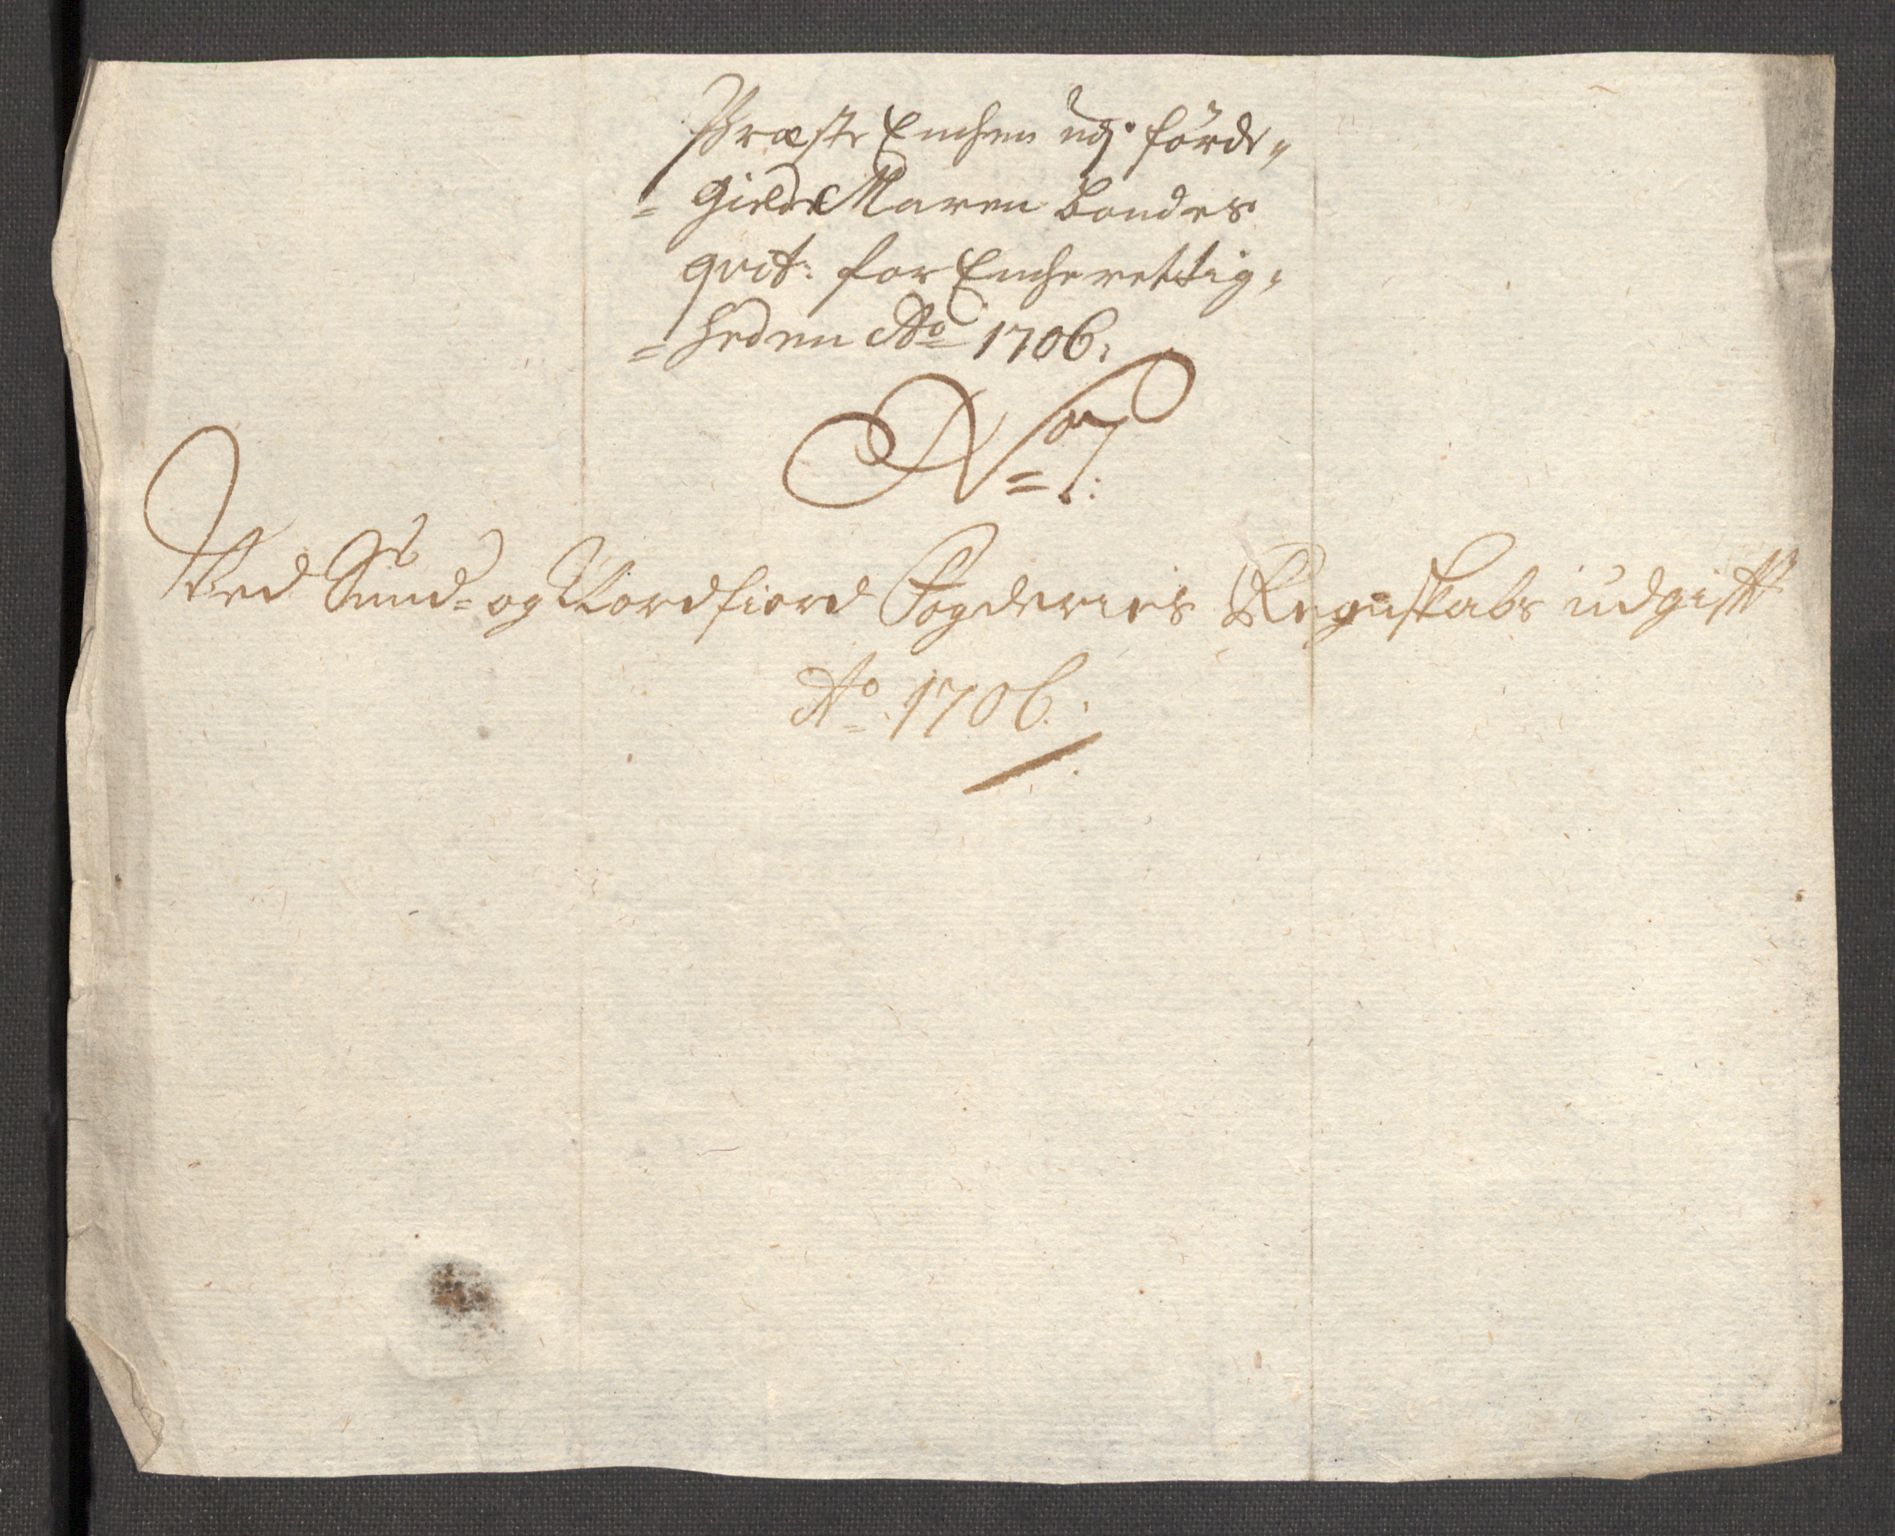 Præste Encken udj förde,,
= Gield Maren bondes
qvit: for Enche rettig,
= heden Ao 1706:
No 7:
Ved Sund= og Nordfiord Fogderies Regnskabs udgifft
Ao. 1706.